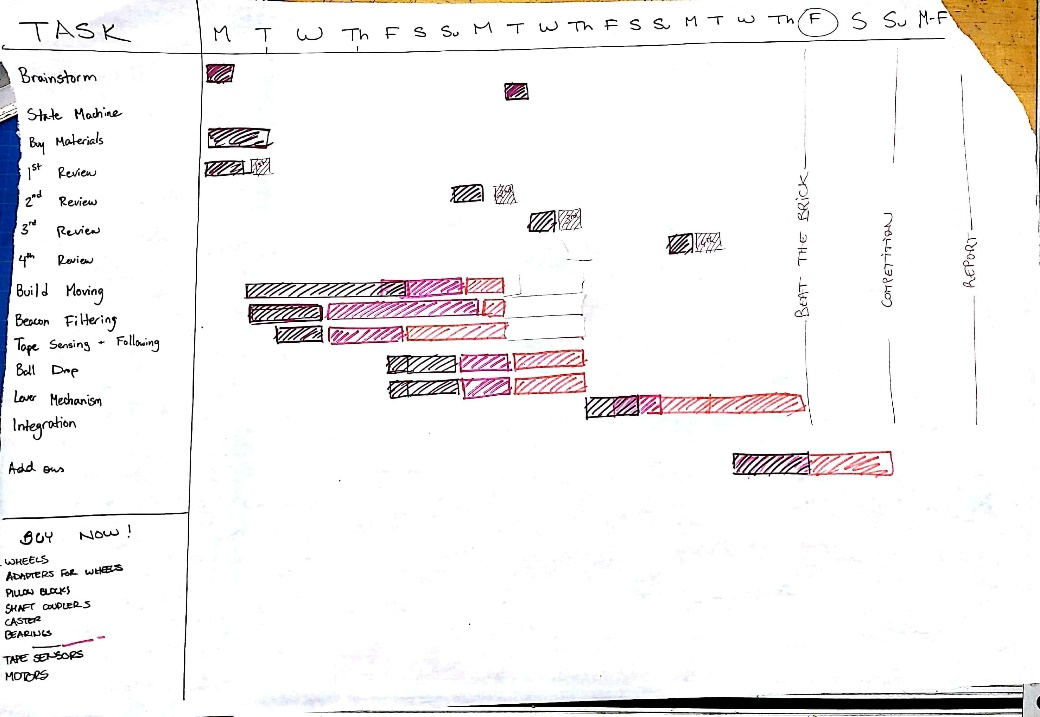 TASK M T W Th F S Su M T W Th F S Su M T W Th F S Su M-F
Brainstorm
State Machine
Buy Materials
1st Review
2nd Review
3rd Review
4th Review
Build Moving
Beacon Filtering
Tape Sensing + Following
Ball Drop
Lever Mechanism
Integration
Add ons
BEAT THE BRICK
COMPETITION
REPORT
BUY NOW!
WHEELS
ADAPTERS FOR WHEELS
PILLOW BLOCKS
SHAFT COUPLERS
CASTER
BEARINGS
TAPE SENSORS
MOTORS